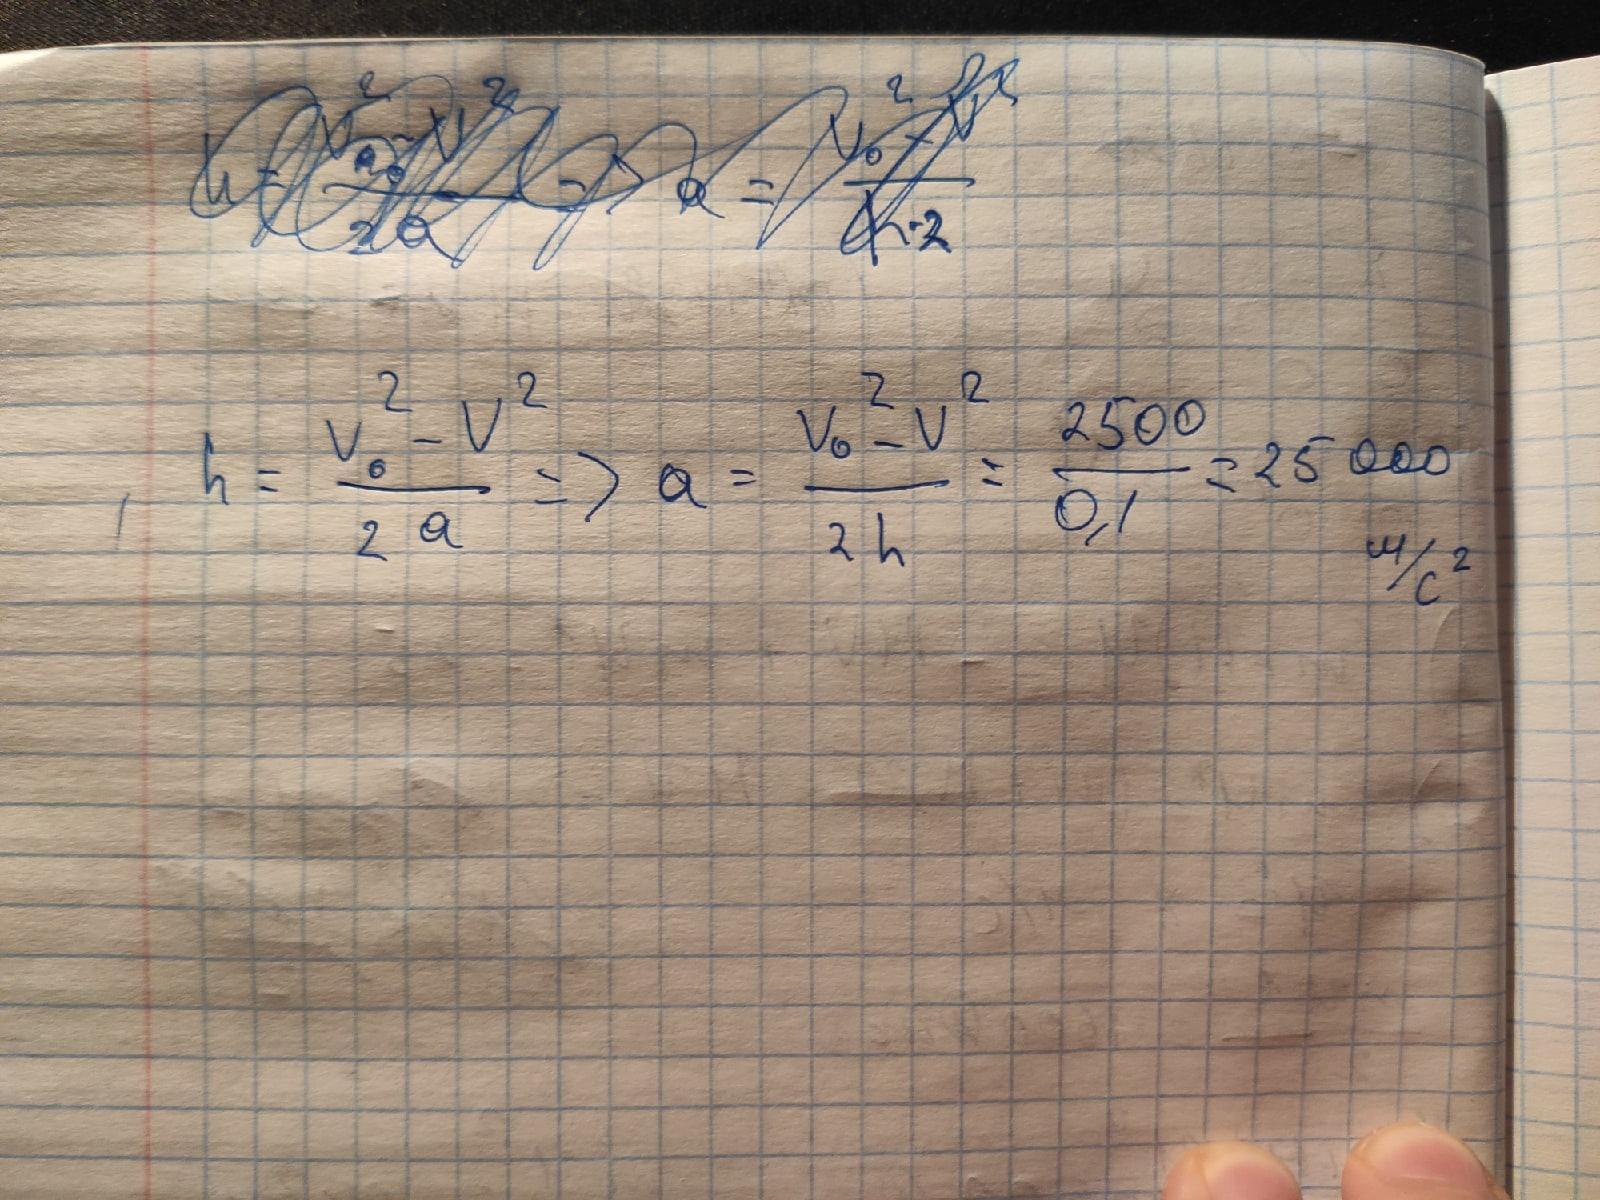 h = (V₀² - V²) / (2a) => a = (V₀² - V²) / (2h) = 2500 / 0,1 = 25 000 м/с²